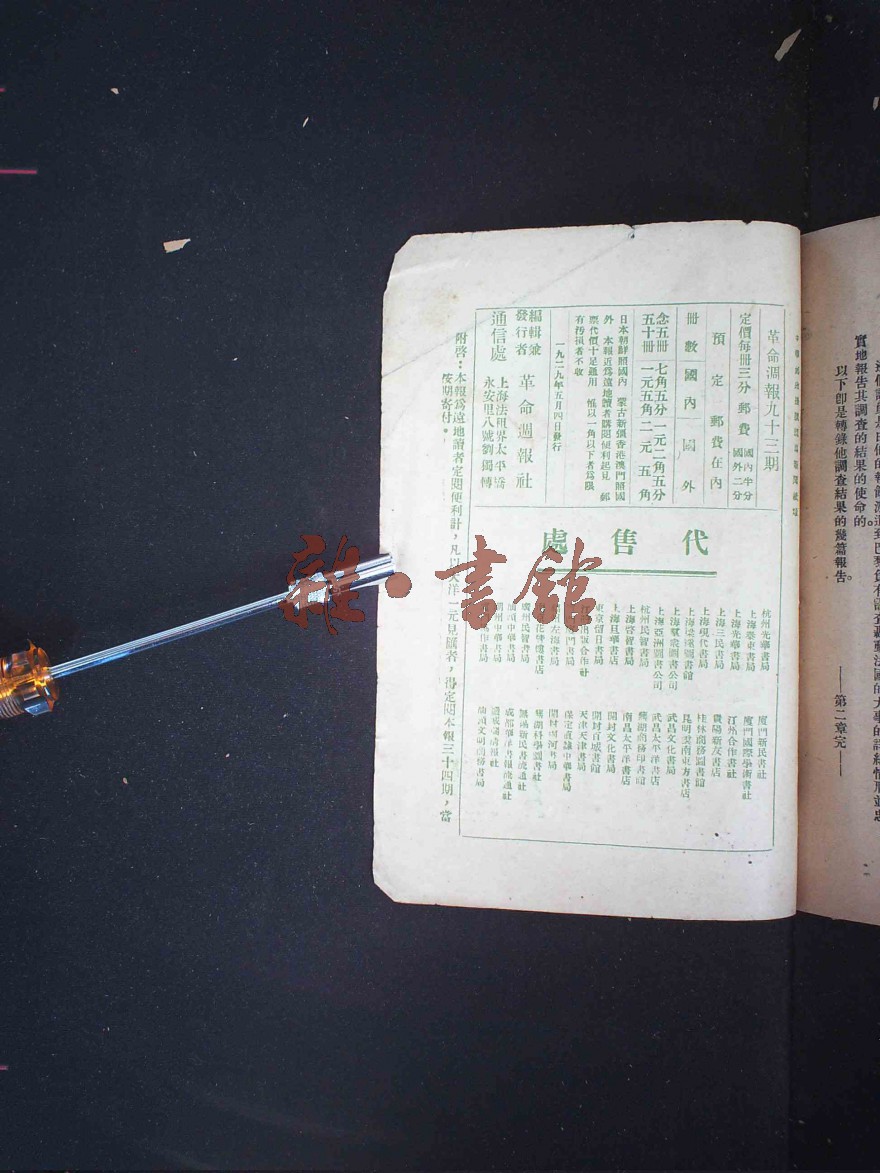 實地報告其調查的結果的使命的。
以下卽是轉錄他調查結果的幾篇報告。
——第二章完——
革命週報九十三期
定價每冊三分 郵費 國內半分 國外二分
預定郵費在內
冊數 國內 國外
念五冊 七角五分 一元二角五分
五十冊 一元五角 二元五角
日本朝鮮照國內 蒙古新疆香港澳門照國
外 本報近爲遠地讀者購閱便利起見 郵
票代價十足通用 惟以一角以下者爲限
有汚損者不收
一九二九年五月四日發行
編輯兼發行者 革命週報社
通信處 上海法租界太平橋
永安里八號劉獨轉
附啓:本報爲遠地讀者定閱便利計,凡以大洋一元見匯者,得定閱本報三十四期,當
按期寄付。
代售處
杭州光華書局
上海泰東書局
上海光華書局
上海三民書局
上海現代書局
上海羣衆圖書公司
上海亞洲圖書公司
杭州民智書局
上海啓智書局
上海旦華書店
東京留日書局
廣州民智書局
汕頭中華書局
廈門新民書社
廈門國際學術書社
汀州合作書社
貴陽新友書店
桂林商務圖書館
昆明雲南東方書店
武昌文化書局
武昌太平洋書店
蕪湖商務印書館
南昌太平洋書店
開封文化書局
開封百城書館
天津天津書局
保定直隸中華書局
開封兩河書局
蕪湖科學圖書社
無錫新民書流通社
成都華洋書報流通社
汕頭文明商務書局
雜·書館